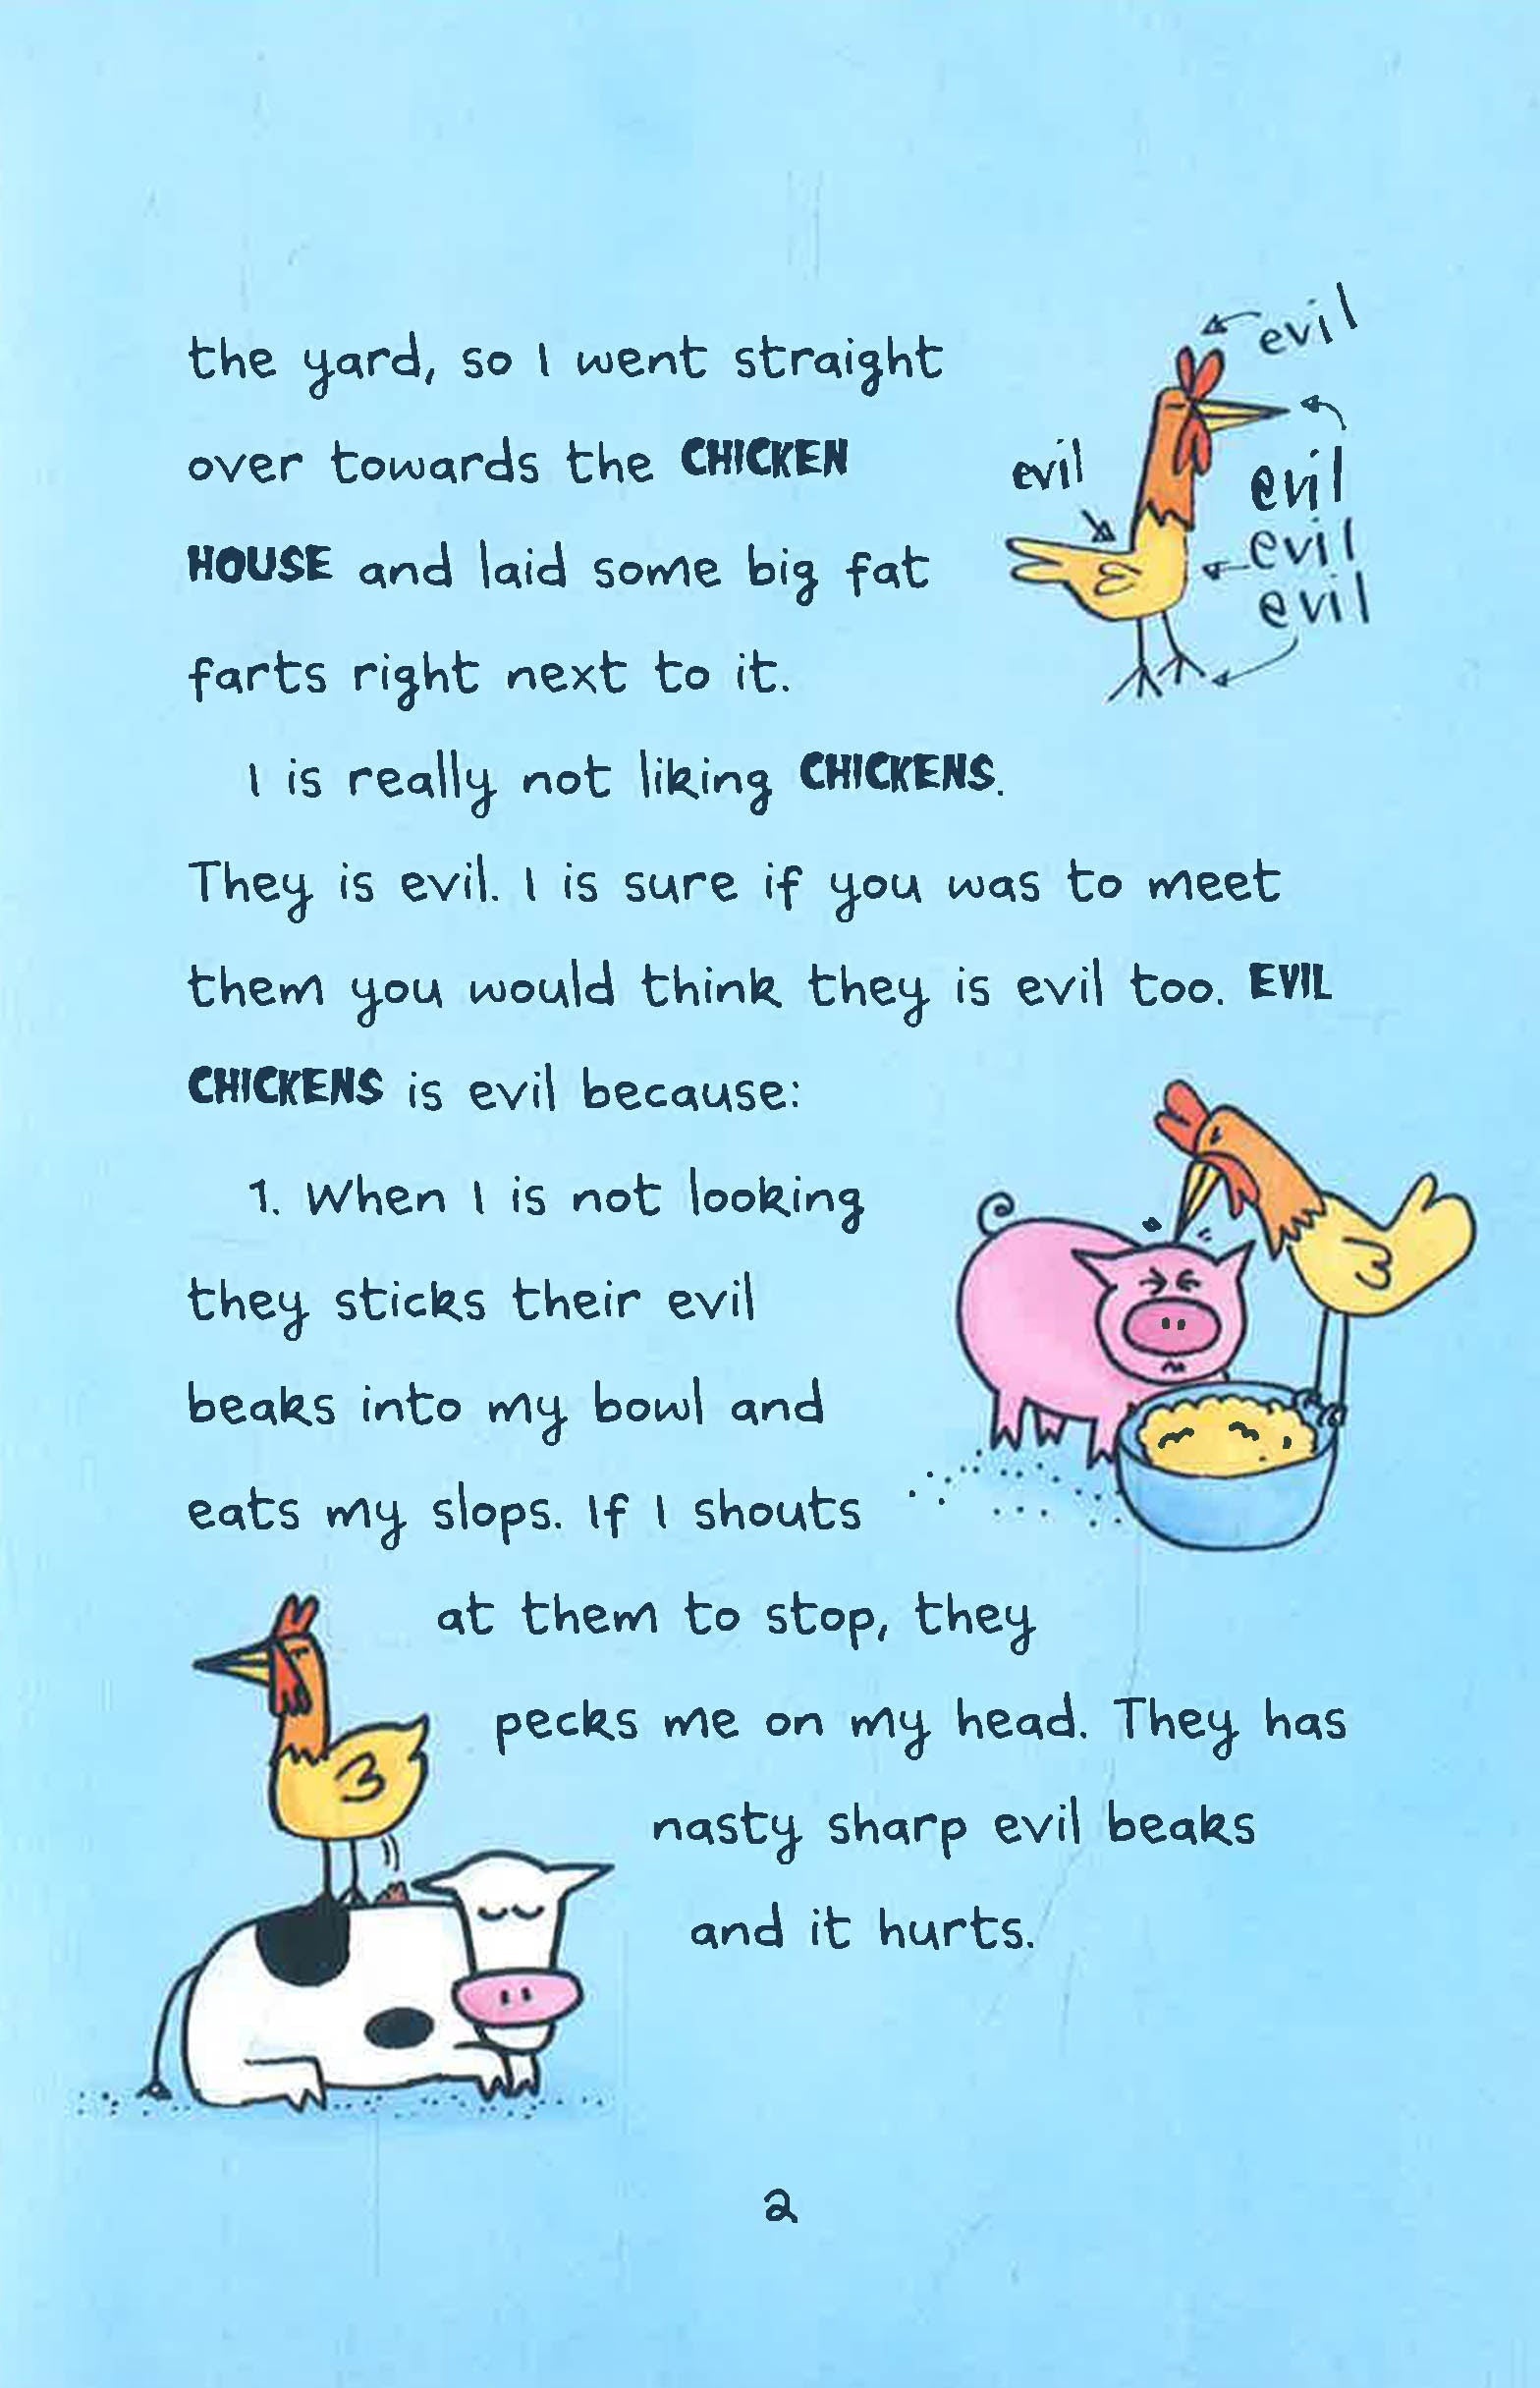 the yard, so I went straight
over towards the CHICKEN
HOUSE and laid some big fat
farts right next to it.
evil
evil
evil
evil
evil
I is really not liking CHICKENS.
They is evil. I is sure if you was to meet
them you would think they is evil too. EVIL
CHICKENS is evil because:
1. When I is not looking
they sticks their evil
beaks into my bowl and
eats my slops. If I shouts
at them to stop, they
pecks me on my head. They has
nasty sharp evil beaks
and it hurts.
2